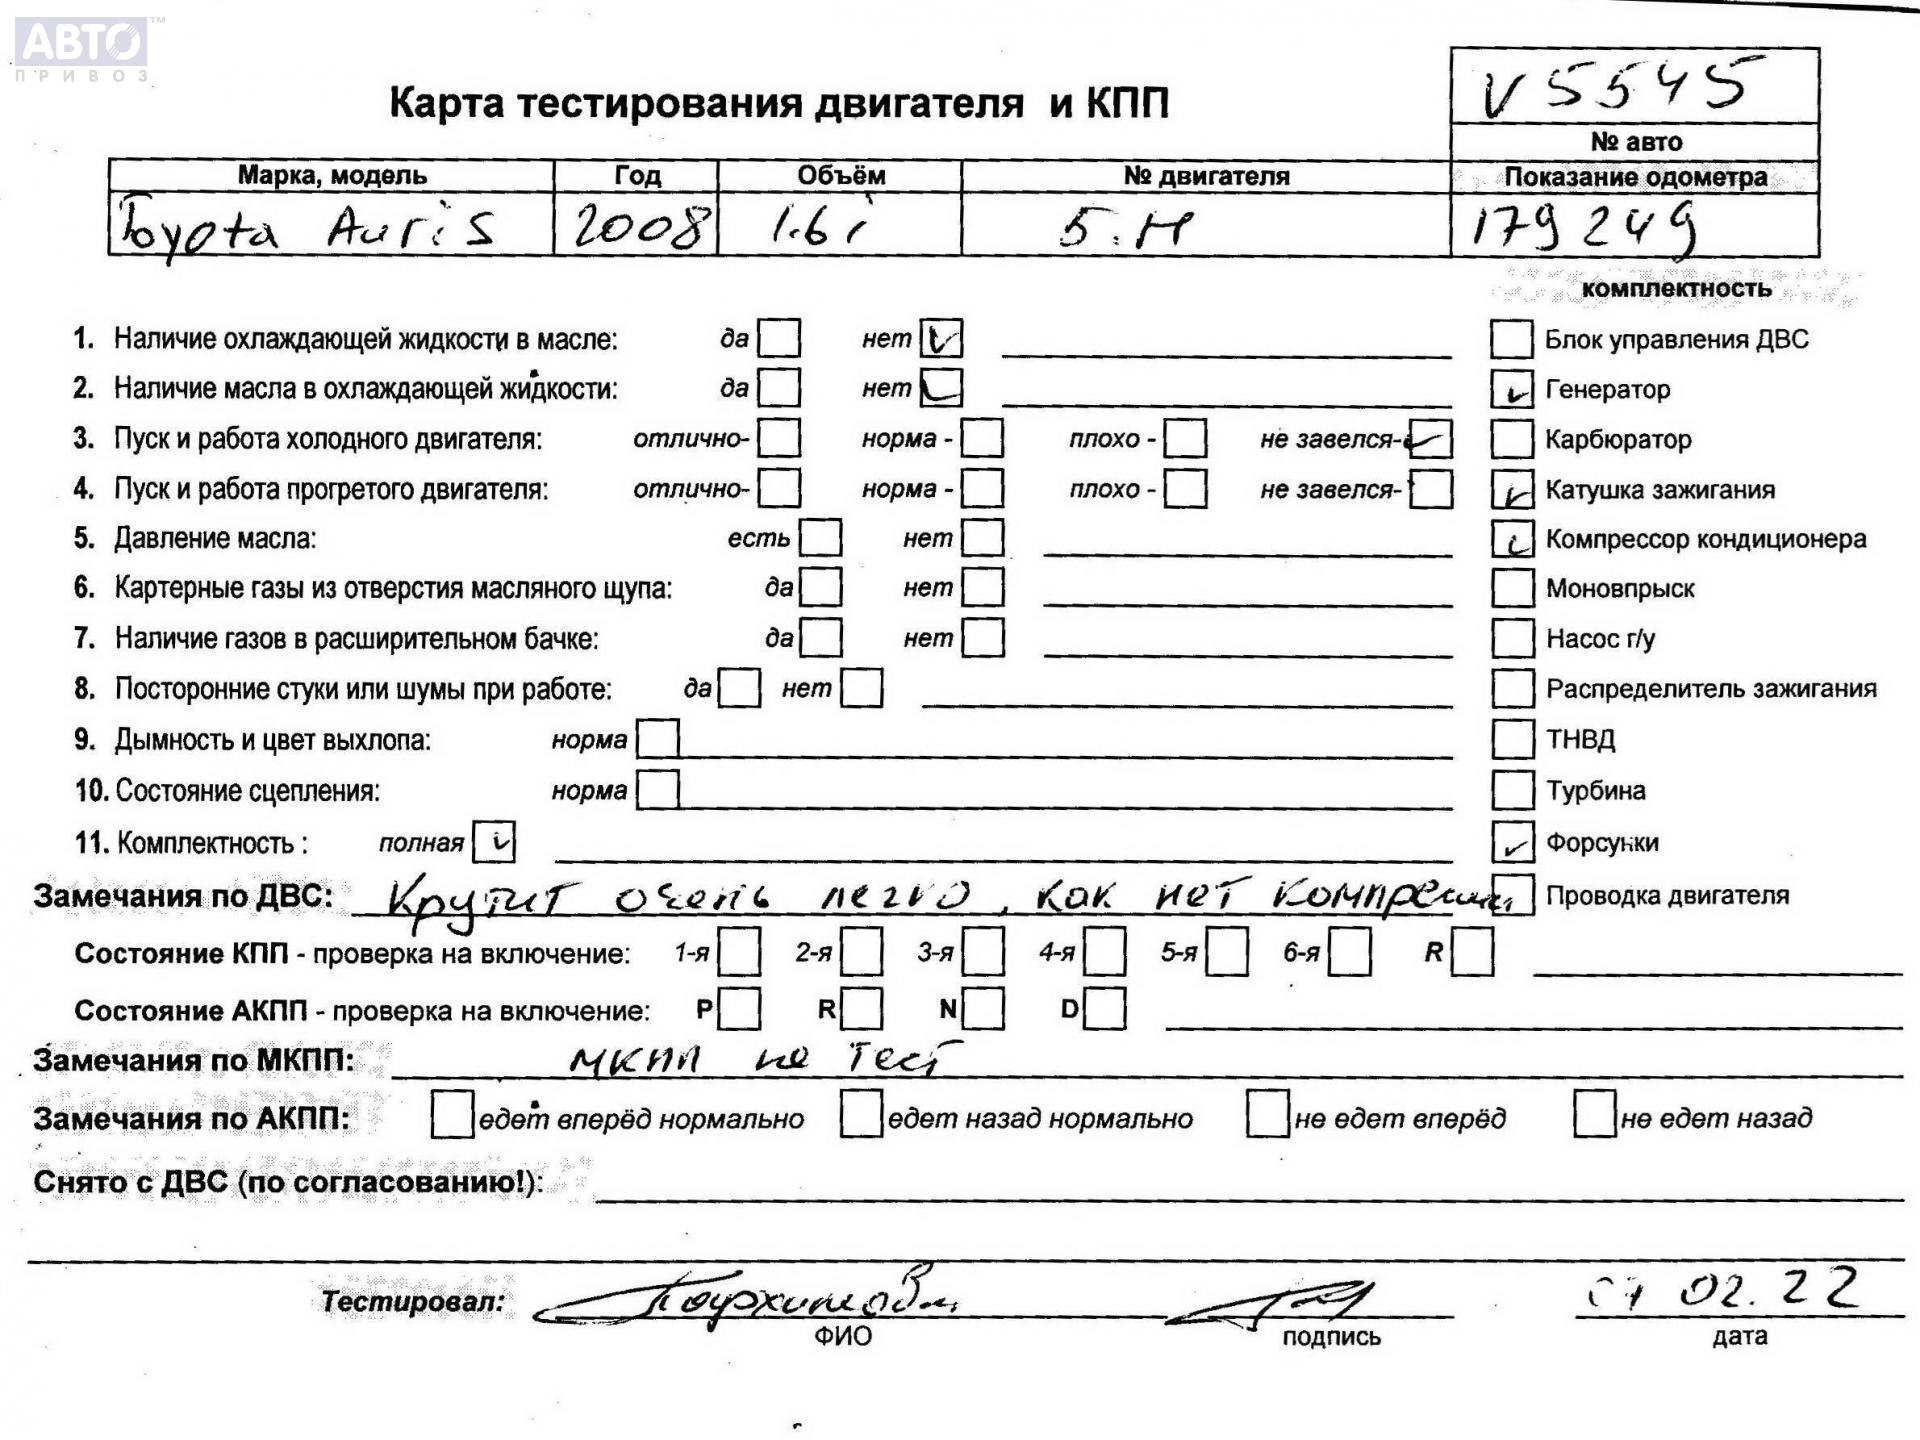 АВТО™
ПРИВОЗ
V5545
Карта тестирования двигателя и КПП
№ авто
Марка, модель Год Объём № двигателя Показание одометра
Toyota Auris 2008 1.6i Б.Н 179249
комплектность
1. Наличие охлаждающей жидкости в масле: да нет Блок управления ДВС
2. Наличие масла в охлаждающей жидкости: да нет Генератор
3. Пуск и работа холодного двигателя: отлично- норма - плохо - не завелся- Карбюратор
4. Пуск и работа прогретого двигателя: отлично- норма - плохо - не завелся- Катушка зажигания
5. Давление масла: есть нет Компрессор кондиционера
6. Картерные газы из отверстия масляного щупа: да нет Моновпрыск
7. Наличие газов в расширительном бачке: да нет Насос г/у
8. Посторонние стуки или шумы при работе: да нет Распределитель зажигания
9. Дымность и цвет выхлопа: норма ТНВД
10. Состояние сцепления: норма Турбина
11. Комплектность : полная Форсунки
Замечания по ДВС: Крутит очень легко, как нет компрессии Проводка двигателя
Состояние КПП - проверка на включение: 1-я 2-я 3-я 4-я 5-я 6-я R
Состояние АКПП - проверка на включение: P R N D
Замечания по МКПП: МКПП не тест
Замечания по АКПП: едет вперёд нормально едет назад нормально не едет вперёд не едет назад
Снято с ДВС (по согласованию!):
Тестировал: 02.22
ФИО подпись дата